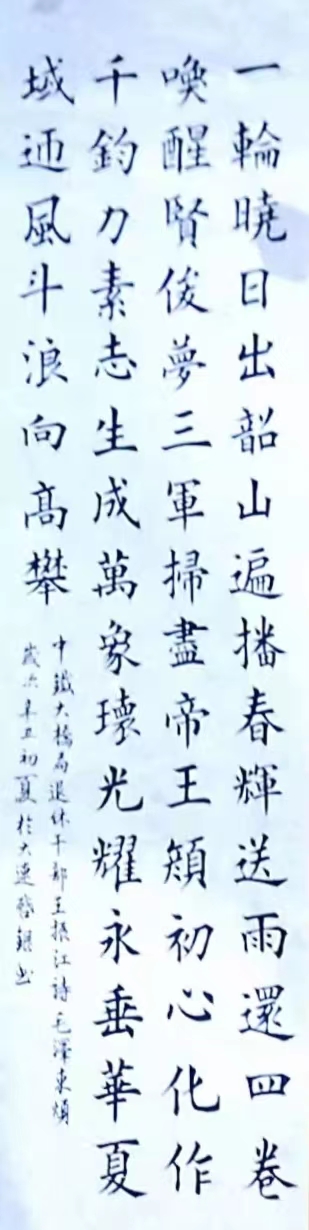 一輪曉日出韶山遍播春輝送雨還四卷
喚醒賢俊夢三軍掃盡帝王顏初心化作
千鈞力素志生成萬象瓌光耀永垂華夏
域迊風斗浪向高攀
中鐵大橋局退休干部王振江詩毛澤東頌
歲次辛丑初夏於大連